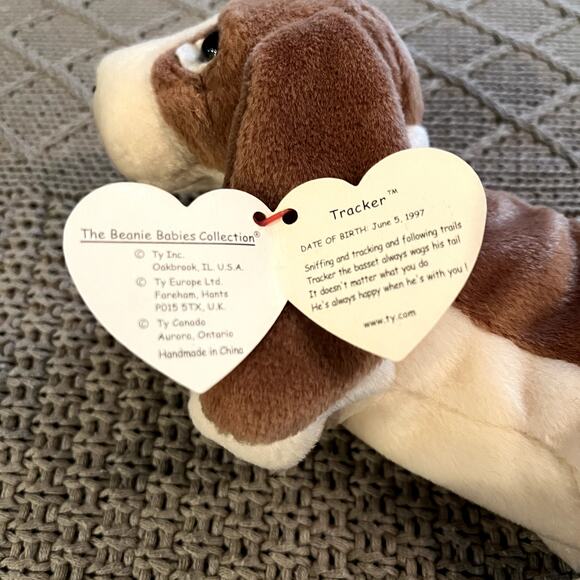 The Beanie Babies Collection®
© Ty Inc.
Oakbrook, IL. U.S.A.
© Ty Europe Ltd.
Fareham, Hants
PO15 5TX, U.K.
© Ty Canada
Aurora, Ontario
Handmade in China
Tracker™
DATE OF BIRTH: June 5, 1997
Sniffing and tracking and following trails
Tracker the basset always wags his tail
It doesn't matter what you do
He's always happy when he's with you!
www.ty.com